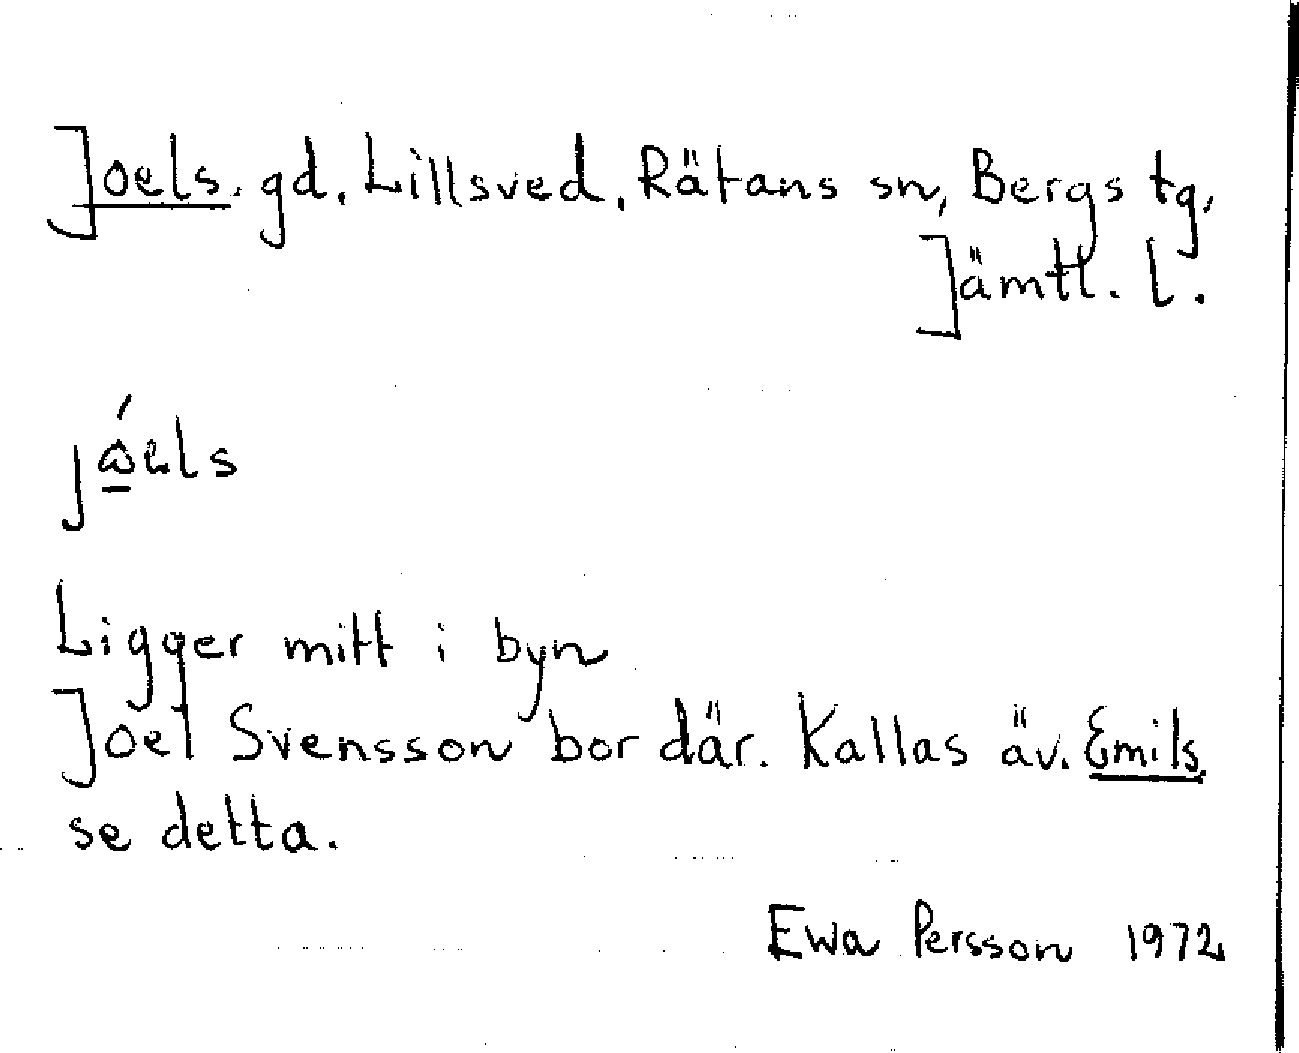 Joels. gd. Lillsved. Rätans sn, Bergs tg,
Jämtl. l.
Ligger mitt i byn
Joel Svensson bor där. Kallas äv. Emils
se detta.
Ewa Persson 1972